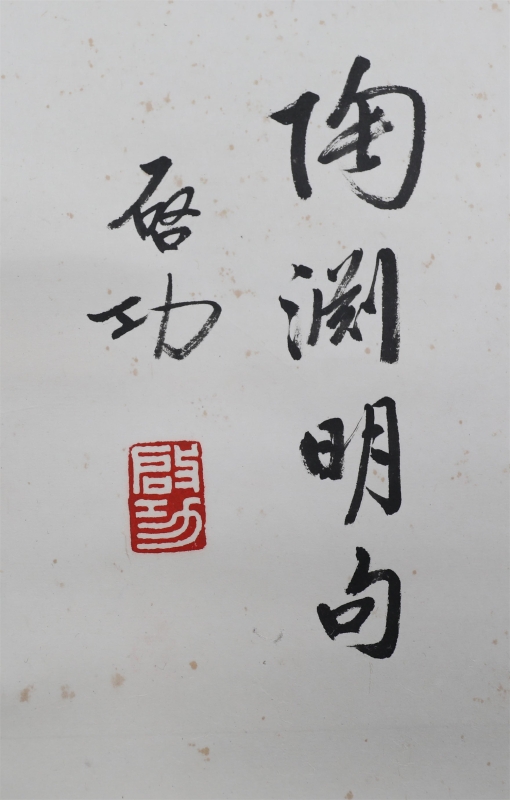 陶渊明句
啓功
啓功